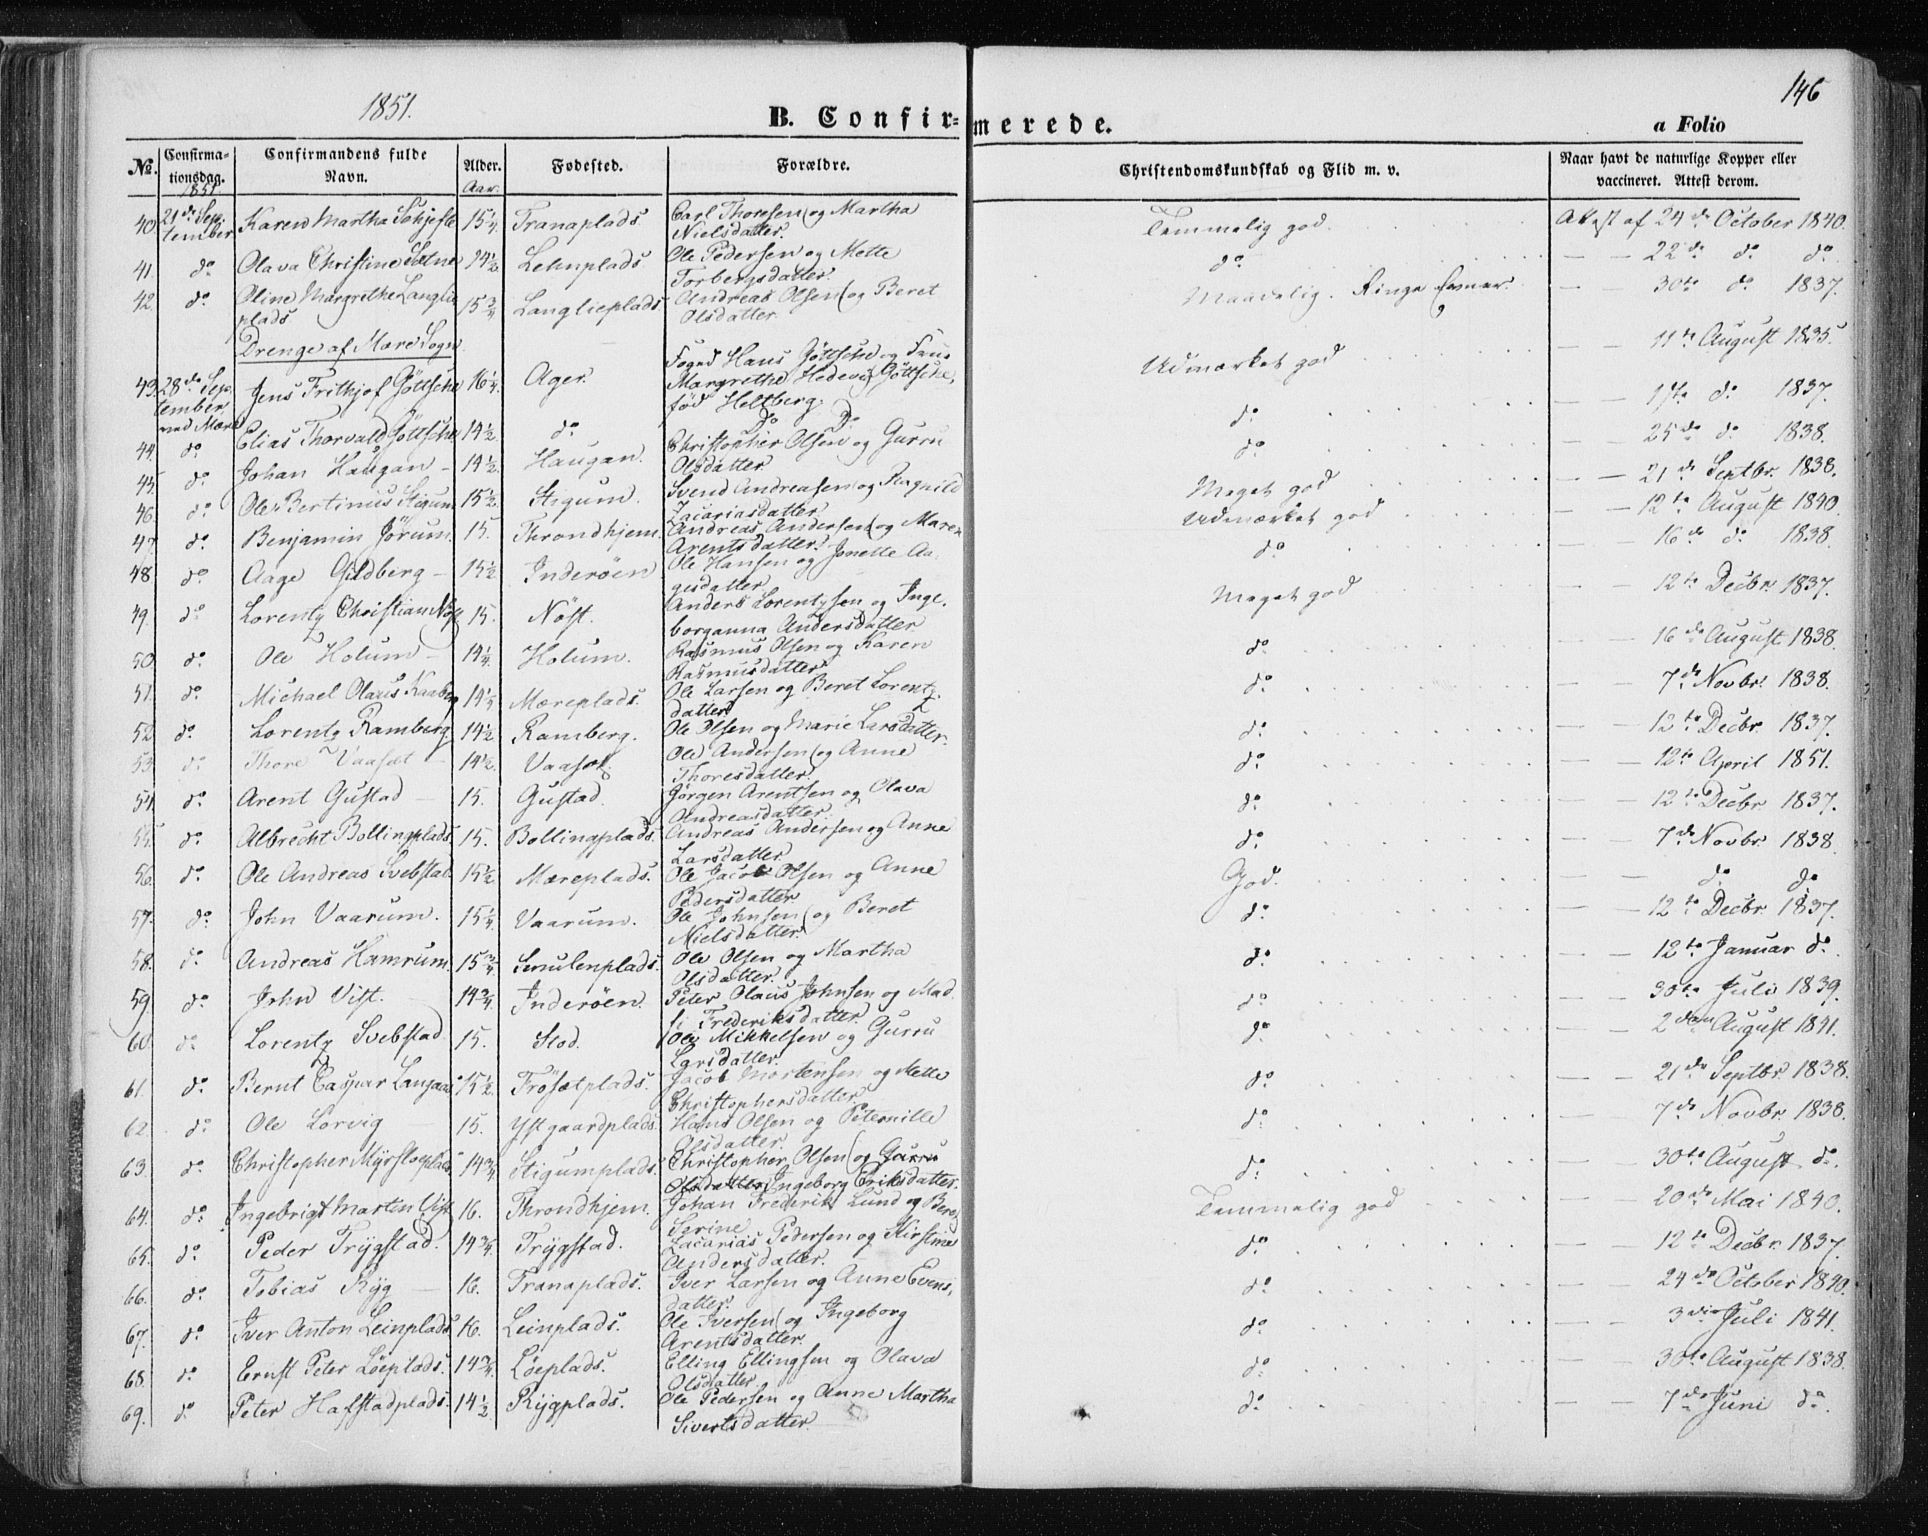 1851.
146
B. Confir=
merede.
a Folio
No.
Confirma-
tionsdag.
Confirmandens fulde
Navn.
Alder.
Fødested.
Forældre.
Christendomskundskab og Flid m. v.
Naar havt de naturlige Kopper eller
vaccineret. Attest derom.
1851.
Aar.
40. 21de Sep-
tember Karen Martha 15 1/4 Tranaplads. Carl Thoresen og Martha
Nielsdatter. Temmelig god. Attest af 24de October 1840.
41. do Olava Christine Sætne 14 1/2 Lehnplads Ole Pedersen og Mette
Torbergsdatter. do — — 22de do do.
42. do Oline Margrethe Langlie
plads 15 3/4 Langlieplads. Andreas Olsen og Beret
Olsdatter. Maadelig. Ringe Evner. — — 30te do 1837.
Drenge af Mære Sogn.
43. 28de Sep-
tember
ved Mære Jens Frithjof Göttsche 16 1/4 Ager. Foged Hans Göttsche og Frue
Margrethe Hedevig Göttsche,
fød Heltberg. Udmærket god 11te August 1835.
44. do Elias Thorvald Göttsche 14 1/2 do. Do Do. do. — — 17te do. 1837.
45. do. Johan Haugan — 14 1/2 Haugan. Christopher Olsen og Gurru
Olsdatter do. — — 25de do. 1838.
46. do. Ole Bertinius Stigum 15 1/2 Stigum. Svend Andreasen og Ragnild
Zacariasdatter. Meget god — — 21de Septbr. 1838.
47. do. Benjamin Jörum. 15. Throndhjem. Andreas Andersen og Maren
Arentsdatter. Udmærket god — — 12te August 1840.
48. do. Aage Gildberg — 15 1/2 Inderöen Ole Hansen og Jonette Aa-
gesdatter do — — 16de do 1838.
49. do. Lorentz Christian Nöst 15. Nöst. Anders Lorentzsen og Inge-
borganna Andersdatter. Meget god — — 12te Decbr. 1837.
50. do. Ole Holum — 14 1/4 Holum. Rasmus Olsen og Karen
Rasmusdatter do. — — 16de August 1838.
51. do. Michael Olaus Kaaberg 14 1/4 Mæreplads. Ole Larsen og Beret Lorentz-
datter do. — — 7de Novbr. 1838.
52. do. Lorentz Ramberg. 14 1/2 Ramberg. Ole Olsen og Marie Larsdatter. do. — — 12te Decbr. 1837.
53. do. Thore Vaasæt — 14 1/2 Vaasæt. Ole Andersen og Anne
Thoresdatter. do. — — 12te April 1851.
54. do. Arent Gustad — 15. Gustad. Jørgen Arentsen og Olava
Andreasdatter. do. — — 12te Decbr. 1837.
55. do. Albrecht Bollingplads 15. Bollingplads. Andreas Andersen og Anne
Larsdatter do. — — 7de Novbr. 1838.
56. do. Ole Andreas Svebstad 15 1/2 Mæreplads. Ole Jacob Olsen og Anne
Pedersdatter God. — — do do
57. do. John Vaarum. 15 1/4 Vaarum. Ole Johnsen og Beret
Nielsdatter. do. — — 12te Decbr. 1837.
58. do. Andreas Hamrum. 15 3/4 Smulenplads. Ole Olsen og Martha
Olsdatter. do. — — 12te Januar do.
59. do. John Vist. 14 3/4 Inderöen. Peter Olaus Johnsen og Mad.
Si. Frederiksdatter. do — — 30te Juli 1839.
60. do. Lorentz Svebstad 15. Stod. Ole Mikkelsen og Gurru
Larsdatter. do. — — 2den August 1841.
61. do. Bernt Caspar Langaas 15 1/2 Frösætplads. Jacob Mortensen og Mette
Christophersdatter do. — — 21de Septbr 1838.
62. do. Ole Lorvig 15. Ystgaardplads. Hans Olsen og Peternille
Olsdatter. do. — — 7de Novbr. 1838.
63. do. Christopher Myrsloeplads 14 3/4 Stigumplads. Christopher Olsen og Gurru
Olsdatter. Ingeborg Eriksdatter. do. — — 30te August do.
64. do. Ingebrigt Marten Vist 16. Throndhjem. Johan Frederik Lund og Beret
Serine Temmelig god — — 20de Mai 1840.
65. do. Peder Trygstad. 14 3/4 Trygstad. Zacarias Pedersen og Kirstine
Andersdatter. do. — — 12te Decbr. 1837.
66. do. Tobias Ryg — 16. Tranaplads. Iver Larsen og Anne Evens-
datter. do. — — 24de October 1840.
67. do. Iver Anton Leinplads 16. Leinplads. Ole Iversen og Ingeborg
Arentsdatter. do. — — 3die Juli 1841.
68. do. Ernst Peter Löeplads. 14 3/4 Löeplads. Elling Ellingsen og Olava
Olsdatter. do. — — 30te August 1838.
69. do Peter Hafstadplads. 14 1/2 Rygplads. Ole Pedersen og Anne Martha
Sivertsdatter. do. — — 7de Juni do.